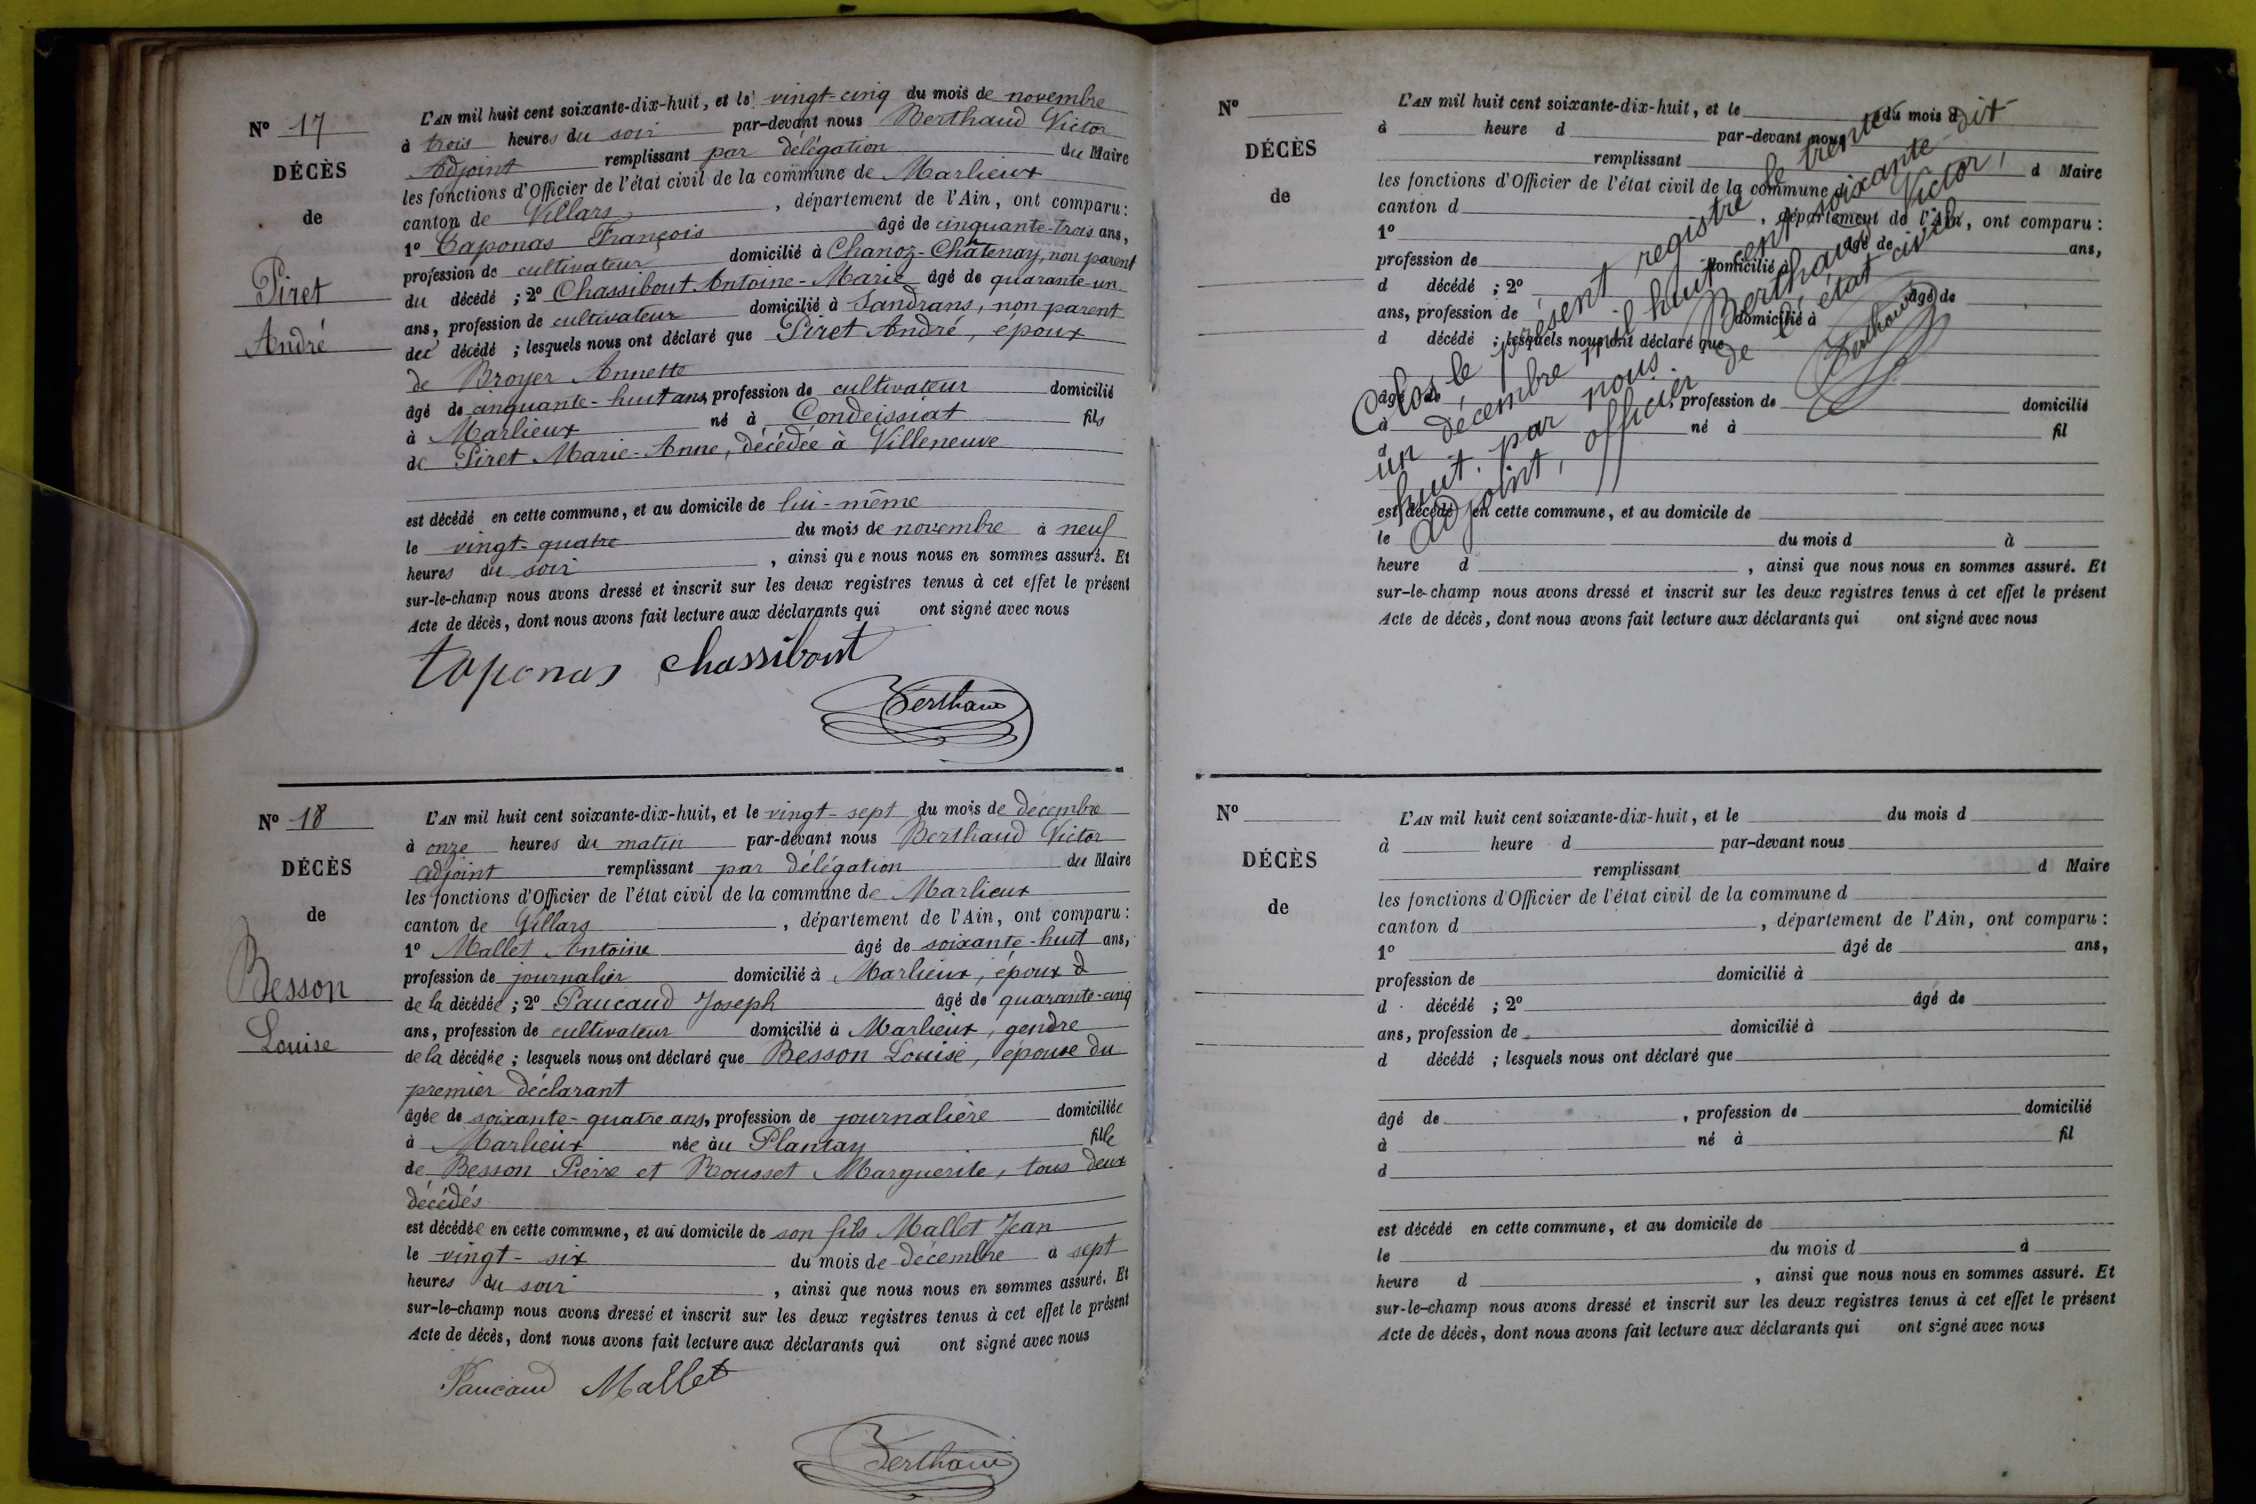 N° 17
DÉCÈS
de
Piret
André
L'AN mil huit cent soixante-dix-huit, et le vingt-cinq du mois de novembre
à trois heures du soir par-devant nous Berthaud Victor
Adjoint remplissant par délégation du Maire
les fonctions d'Officier de l'état civil de la commune de Marlieux
canton de Villars, département de l'Ain, ont comparu :
1° Taponas François âgé de cinquante-trois ans,
profession de cultivateur domicilié à Chanoz-Châtenay, non parent
du décédé ; 2° Chassibout Antoine-Marie âgé de quarante-un
ans, profession de cultivateur domicilié à Sandrans, non parent
du décédé ; lesquels nous ont déclaré que Piret André, époux
de Broyer Annette
âgé de cinquante-huit ans, profession de cultivateur domicilié
à Marlieux né à Condeissiat fils
de Piret Marie-Anne, décédée à Villeneuve
est décédé en cette commune, et au domicile de lui-même
le vingt-quatre du mois de novembre à neuf
heures du soir, ainsi que nous nous en sommes assuré. Et
sur-le-champ nous avons dressé et inscrit sur les deux registres tenus à cet effet le présent
Acte de décès, dont nous avons fait lecture aux déclarants qui ont signé avec nous
taponas chassibout
Berthaud
N° 18
DÉCÈS
de
Besson
Louise
L'AN mil huit cent soixante-dix-huit, et le vingt-sept du mois de décembre
à onze heures du matin par-devant nous Berthaud Victor
adjoint remplissant par délégation du Maire
les fonctions d'Officier de l'état civil de la commune de Marlieux
canton de Villars, département de l'Ain, ont comparu :
1° Mallet Antoine âgé de soixante-huit ans,
profession de journalier domicilié à Marlieux, époux d
de la décédée ; 2° Paucaud Joseph âgé de quarante-cinq
ans, profession de cultivateur domicilié à Marlieux, gendre
de la décédée ; lesquels nous ont déclaré que Besson Louise, épouse du
premier déclarant
âgée de soixante-quatre ans, profession de journalière domiciliée
à Marlieux née au Plantay fille
de Besson Pierre et Rousset Marguerite, tous deux
décédés
est décédée en cette commune, et au domicile de son fils Mallet Jean
le vingt-six du mois de décembre à sept
heures du soir, ainsi que nous nous en sommes assuré. Et
sur-le-champ nous avons dressé et inscrit sur les deux registres tenus à cet effet le présent
Acte de décès, dont nous avons fait lecture aux déclarants qui ont signé avec nous
Paucaud Mallet
Berthaud
N°
DÉCÈS
de
L'AN mil huit cent soixante-dix-huit, et le du mois d
à heure d par-devant nous
remplissant d Maire
les fonctions d'Officier de l'état civil de la commune d
canton d , département de l'Ain, ont comparu :
1° âgé de ans,
profession de domicilié à
d décédé ; 2° âgé de
ans, profession de domicilié à
d décédé ; lesquels nous ont déclaré que
âgé de , profession de domicilié
à né à fil
d
est décédé en cette commune, et au domicile de
le du mois d à
heure d , ainsi que nous nous en sommes assuré. Et
sur-le-champ nous avons dressé et inscrit sur les deux registres tenus à cet effet le présent
Acte de décès, dont nous avons fait lecture aux déclarants qui ont signé avec nous
Clos le présent registre le trente
un décembre mil huit cent soixante-dix
huit. par nous Berthaud Victor,
adjoint, officier de l'état civil
Berthaud
N°
DÉCÈS
de
L'AN mil huit cent soixante-dix-huit, et le du mois d
à heure d par-devant nous
remplissant d Maire
les fonctions d'Officier de l'état civil de la commune d
canton d , département de l'Ain, ont comparu :
1° âgé de ans,
profession de domicilié à
d décédé ; 2° âgé de
ans, profession de domicilié à
d décédé ; lesquels nous ont déclaré que
âgé de , profession de domicilié
à né à fil
d
est décédé en cette commune, et au domicile de
le du mois d à
heure d , ainsi que nous nous en sommes assuré. Et
sur-le-champ nous avons dressé et inscrit sur les deux registres tenus à cet effet le présent
Acte de décès, dont nous avons fait lecture aux déclarants qui ont signé avec nous